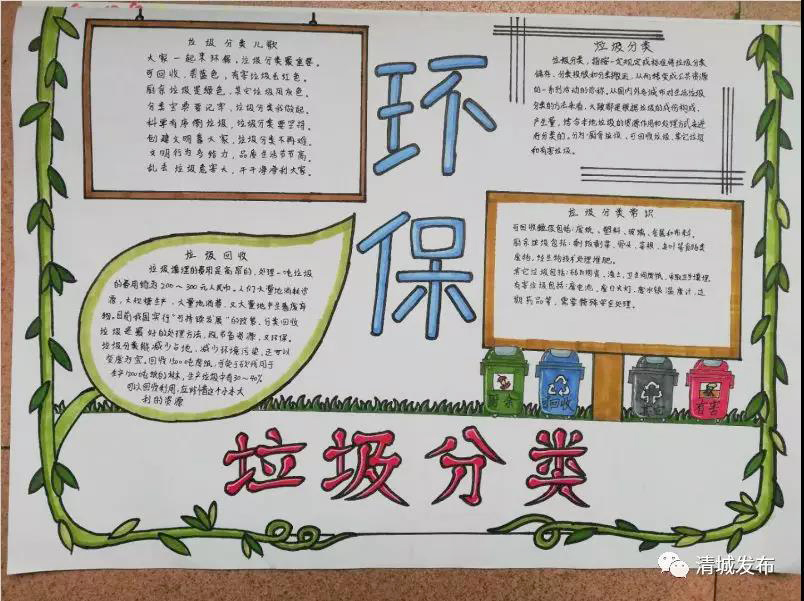 垃圾分类儿歌
大家一起来环保，垃圾分类最重要。
可回收，要蓝色，有害垃圾是红色。
厨余垃圾是绿色，其它垃圾用灰色。
分类宝要看记牢，垃圾分类我做起。
科学有序倒垃圾，垃圾分类要坚持。
创建文明靠大家，垃圾分类不再难。
文明行为多给力，品质生活节节高。
乱丢垃圾危害大，干干净净利大家。
环
保
垃圾分类
垃圾分类，指按一定规定或标准将垃圾分类
储存、分类投放和分类搬运，从而转变成公共资源
的一系列活动的总称。从国内外各城市对生活垃圾
分类的方法来看，大致都是根据垃圾的成份构成、
产生量，结合本地垃圾的资源利用和处理方式来进
行分类的。分为：厨余垃圾、可回收垃圾、其它垃圾
和有害垃圾。
垃圾分类常识
可回收垃圾包括：废纸、塑料、玻璃、金属和布料。
厨余垃圾包括：剩饭剩菜、骨头、菜根、菜叶等食品类
废物，经生物技术处理堆肥。
有害垃圾包括：废电池、废日光灯、废水银温度计、过
期药品等，需要特殊安全处理。
垃圾回收
垃圾填埋的费用是高昂的，处理一吨垃圾
的费用约为200～300元人民币。人们大量地消耗资
源，大规模生产，大量地消费，又大量地产生着废弃
物。目前我国实行"可持续发展"的政策，分类回收
垃圾是最好的处理方法，既节省资源，又环保。
垃圾分类能减少占地，减少环境污染，还可以
变废为宝。回收1500吨废纸，可免于砍伐用于
生产1200吨纸的林木，生产垃圾中有30～40%
可以回收利用，应珍惜这个小本大
利的资源
厨余
可回收
其它
有害
垃圾分类
清城发布